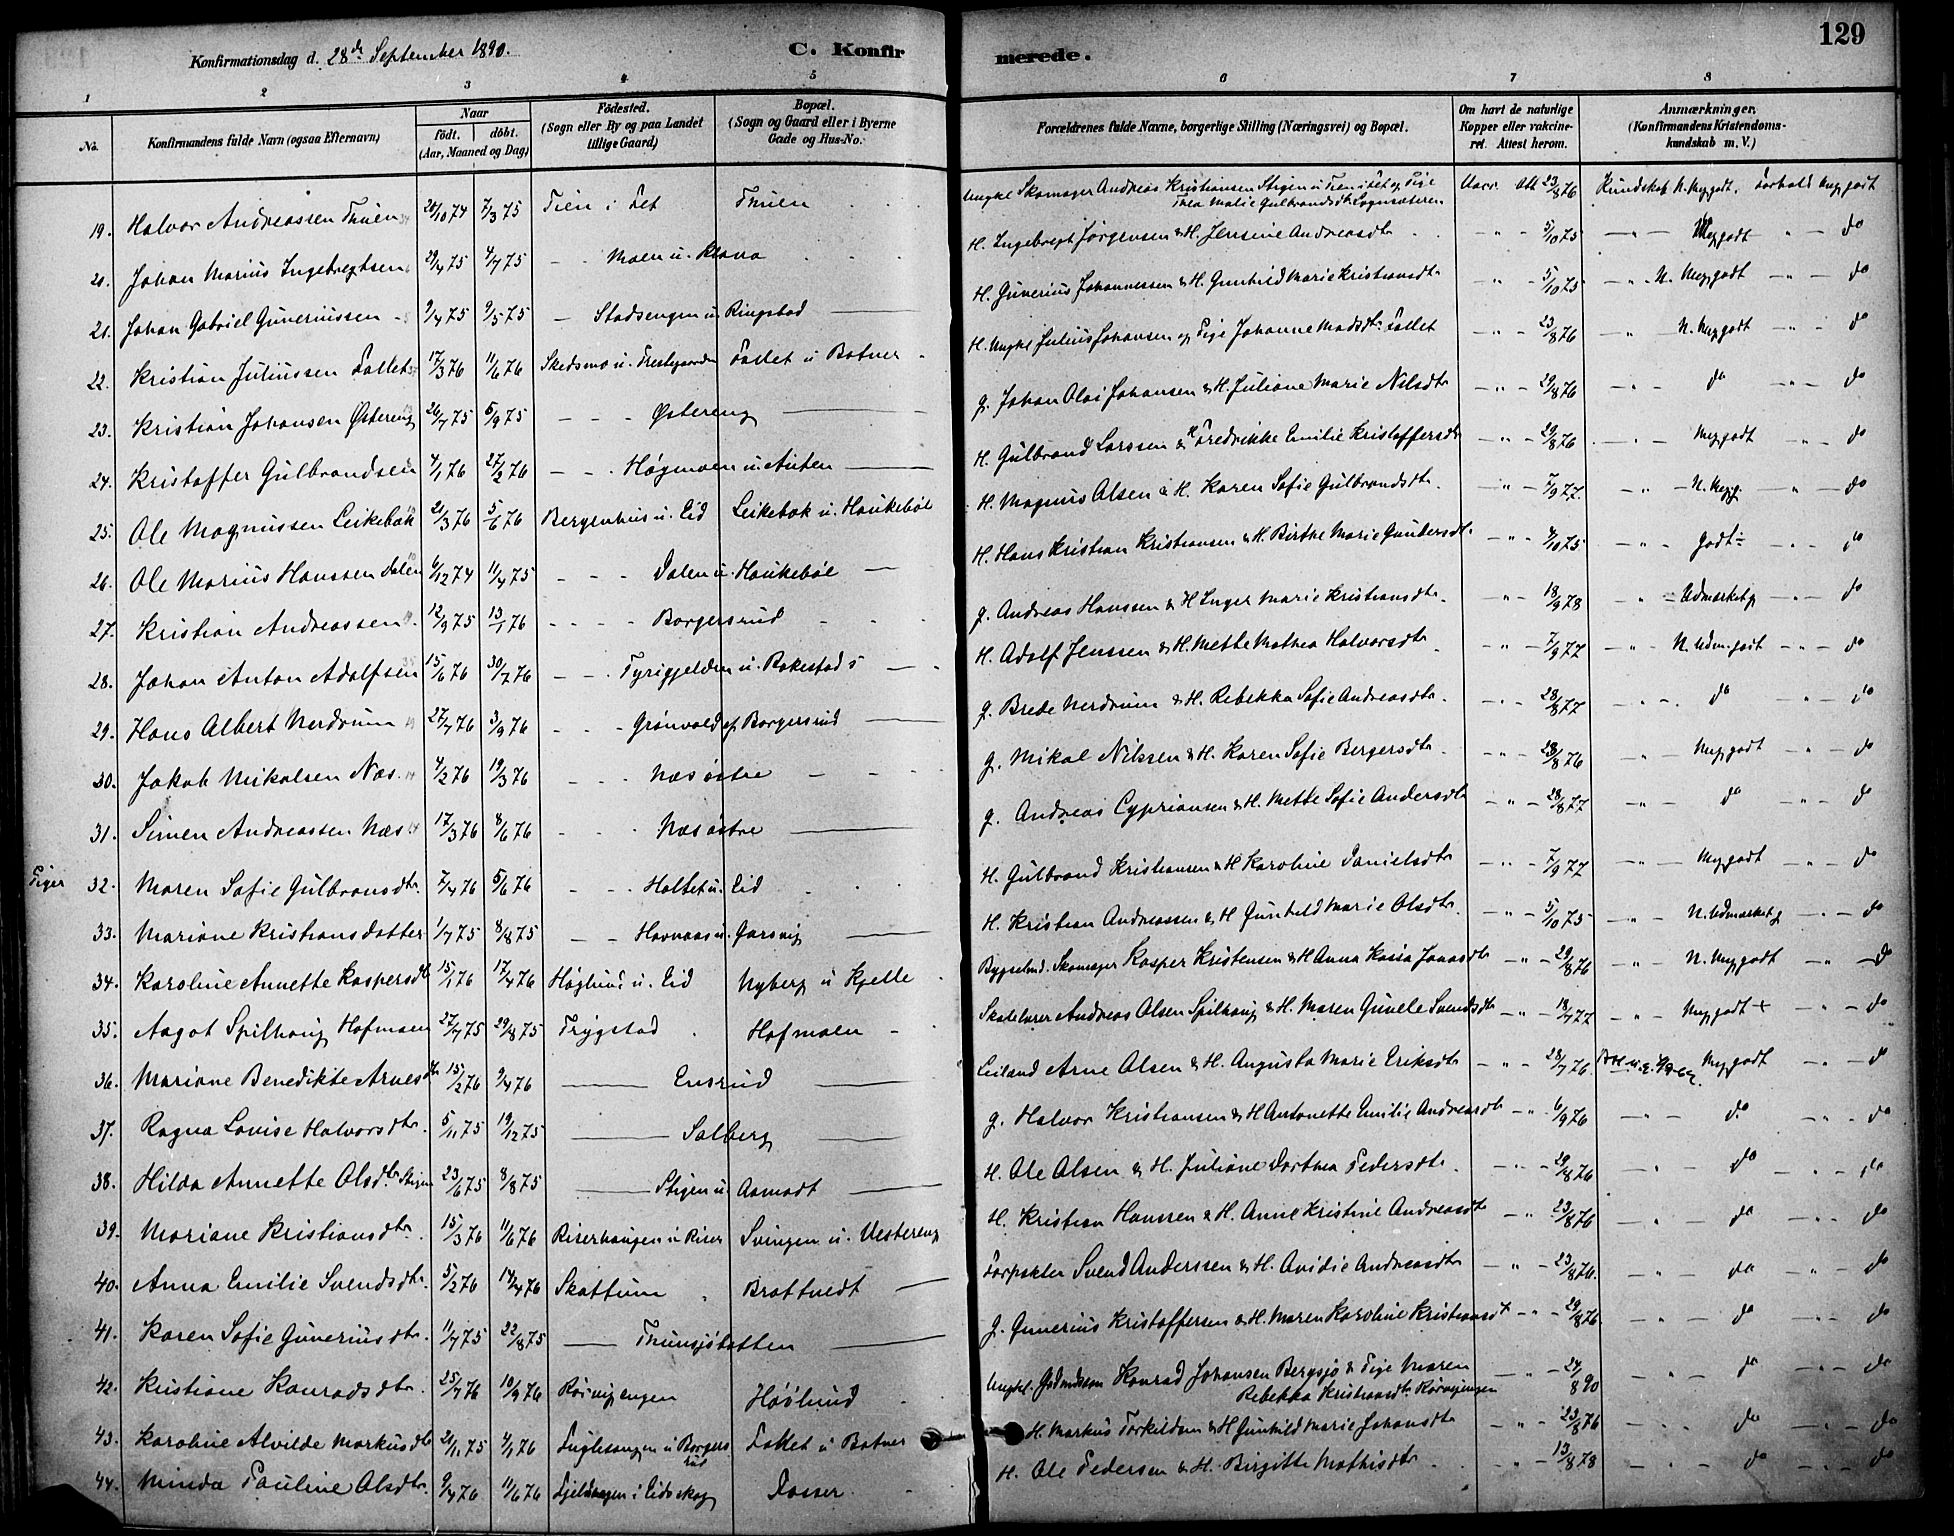 129
Konfirmationsdag d. 28de September 1890. C. Konfir merede.
1 2 3 4 5 6 7 8
No. Konfirmandens fulde Navn (ogsaa Efternavn) Naar født. døbt. (Aar, Maaned og Dag) Födested. (Sogn eller By og paa Landet tillige Gaard) Bopæl. (Sogn og Gaard eller i Byerne Gade og Hus-No. Forældrenes fulde Navne, borgerlige Stilling (Næringsvei) og Bopæl. Om havt de naturlige Kopper eller vakcineret. Attest herom. Anmærkninger. (Konfirmandens Kristendomskundskab m. V.)
19. Halvor Andreassen Thuen 20/10 74 7/3 75 Tien i Fet Thuen Ungkl Skomager Andreas Kristiansen Stigen u Tien i Fet og Pige Thea Malie Gulbrandsdtr Sognsæteren Vacc. Att 23/8 76 Kundskab N. Meg godt. Forhold meg godt
20. Johan Marius Ingebregtsen 29/4 75 4/7 75 - - Moen u. Krona H. Ingebregt Jørgensen & H. Jensine Andreasdtr - " - 5/10 75 - " - Meg godt " - do
21. Johan Gabriel Guneriussen 9/4 75 9/5 75 - Stadsengen u. Ringstad H. Gunerius Johannessen & H. Gunhild Marie Kristiansdtr - " - 5/10 75 - " - N. Meg godt - " - do
22. Kristian Juliussen Fallet 17/3 76 11/6 76 Skedsmo u. Prestegaarden Fallet u Botner H. Ungkl Julius Johansen og Pige Johanne Madsdtr Fallet - " - 23/8 76 - " N. Meg godt - " - do
23. Kristian Johansen Østereng 26/7 75 5/9 75 - - - Østereng g. Johan Olai Johansen & H. Juliane Marie Nilsdtr - " - 29/8 76 - " - do - " - do
24. Kristoffer Gulbrandsen 4/1 76 27/2 76 - - - Høgmoen u. Auten H. Gulbrand Larssen & H Fredrikke Emilie Kristoffersdtr - " - 29/8 76 - " - Meg godt - " - do
25. Ole Magnussen Leikebak 21/3 76 5/6 76 Bergenhus u. Eid Leikebak u. Haukebøl H. Magnus Olsen & H. Karen Sofie Gulbrandsdtr - " - 7/9 77 - " - N. Meg g. " - do
26. Ole Marius Hanssen Dalen 6/12 74 11/4 75 - - - Dalen u. Haukebøl H. Hans Kristian Kristiansen & H. Birthe Marie Gundersdtr - " - 4/10 75 - " - godt ÷ - " - do
27. Kristian Andreassen 12/9 75 13/1 76 - - - Borgersrud g. Andreas Hanssen & H Inger Marie Kristiansdtr - " - 18/9 78 - " - Udmerket g - " - do
28. Johan Anton Adolfsen 15/6 76 30/7 76 - - - Tyrigjelden u. Bakestad s H. Adolf Jenssen & H. Mette Mathea Halvorsdtr - " - 7/9 77 - " - N. Udm. godt - " - do
29. Hans Albert Nerdrum 27/7 76 3/9 76 - - - Grønvold af Borgersrud g. Brede Nerdrum & H. Rebekka Sofie Andreasdtr - " - 28/8 77 - " - do " - do
30. Jakob Mikalsen Næs 4/2 76 19/3 76 - - - Næs østre g. Mikal Nilssen & H. Karen Sofie Bergersdtr - " - 23/8 76 - " - Meg godt " - do
31. Simen Andreassen Næs 17/3 76 8/6 76 - - - Næs østre g. Andreas Cypriansen & H. Mette Sofie Andersdtr - " - 28/8 77 - " - do - " - do
Piger 32. Maren Sofie Gulbransdtr. 7/4 76 5/6 76 - - - Holtet u. Eid H. Gulbrand Kristiansen & H Karoline Danielsdtr - " - 7/9 77 - " - Meg godt - " - do
33. Mariane Kristiansdatter 1/7 75 8/8 75 - - Havnaas u. Garsvig H. Kristian Andreassen & H Gunhild Marie Olsdtr - " - 5/10 75 - " - N. Udmerket g - " - do
34. Karoline Annette Kaspersdtr 15/1 76 17/4 76 Høglund u. Eid Nyberg u Kjelle Bygselmd. Skomager Kasper Kristensen & H Anna Kaisa Jonasdtr - " - 29/8 76 - " - N. Meg godt - " - do
35. Aagot Spilhaug Hofmoen 27/7 75 29/8 75 Trygstad Hofmoen Skolelærer Andreas Olsen Spilhaug & H. Maren Gunelle Svendsdtr - " - 18/7 77 - " - Meg godt + " - do
36. Mariane Benedikte Arnesdtr 15/2 76 9/4 76 Ensrud Leiland Arne Olsen & H. Augusta Marie Eriksdtr - " - 28/7 76. Meg godt " - do
37. Ragna Lovise Halvorsdtr. 5/11 75 19/12 75 Solberg g. Halvor Kristiansen & H Antonette Emilie Andreasdtr - " - 6/9 76 - " - do " - do
38. Hilda Annette Olsdtr Stigen 23/6 75 8/8 75 Stigen u. Aamodt H. Ole Olsen & H. Juliane Dorthea Pedersdtr - " - 29/8 76 - " - do - " - do
39. Mariane Kristiansdtr. 15/3 76 11/6 76 Riserhaugen u. Riser Svingen u. Vestereng H. Kristian Hanssen & H. Anne Kristine Andreasdtr - " - 23/8 76 - " - do - " - do
40. Anna Emilie Svendsdtr. 5/2 76 14/4 76 Skattum Brattvedt Forpakter Svend Anderssen & H. Avidie Andreasdtr - " - 23/8 76. - " - do - " - do
41. Karen Sofie Guneriusdtr. 11/7 75 22/8 75 Thunsjøtotten g. Gunerius Kristoffersen & H. Maren Karoline Kristiansdtr - " - 29/8 76 - " - do - " - do
42. Kristiane Konradsdtr. 25/7 76 10/9 76 Rørvigengen Høölund Ungkl. Konrad Johansen Bergsjø & Pige Maren Rebekka Kristiansdtr Rørvigengen - " - 24/8 90 - " - do " - do
43. Karoline Alvilde Markusdtr 21/11 75 4/1 76 Fuglesangen u Borgersrud Fallet u Botner H. Markus Torkildsen & H Gunhild Marie Johansdtr - " - 23/8 76 - " - do - " - do
44. Minda Pauline Olsdtr. 9/4 76 11/6 76 i Eidskog Dasser H. Ole Pedersen & H. Birgitte Mathisdtr - " - 13/8 78 - " - do - " - do